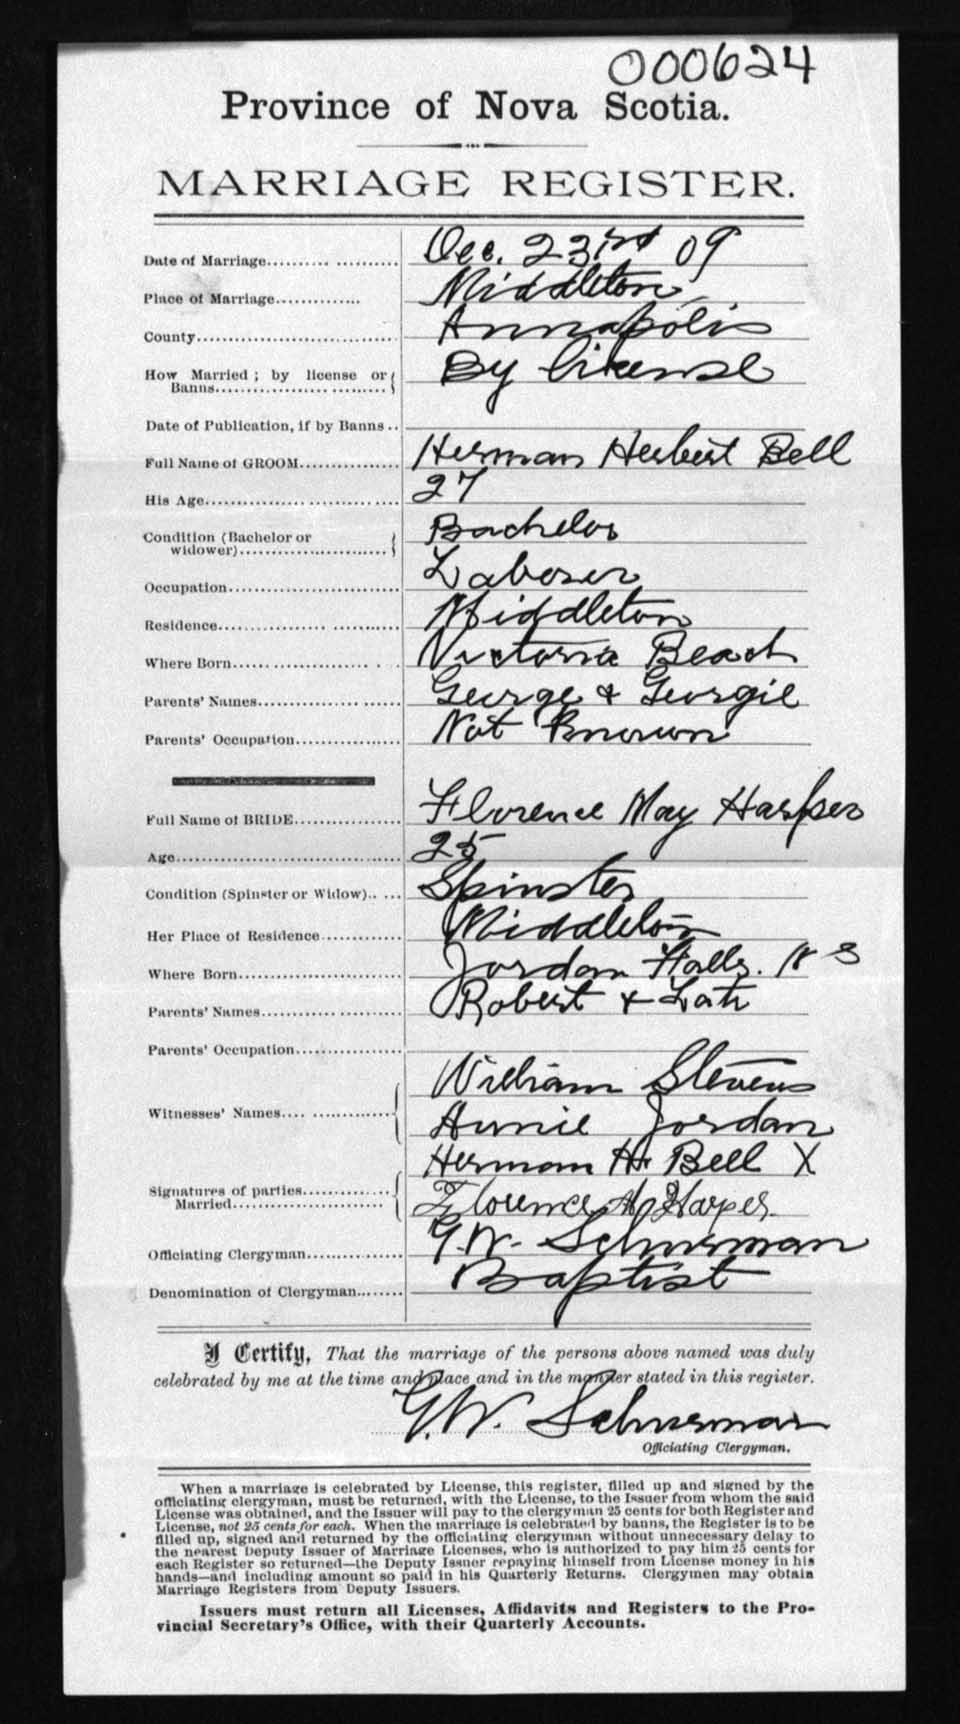 000624
Province of Nova Scotia.
MARRIAGE REGISTER.
Date of Marriage Dec. 23rd 09
Place of Marriage Middleton
County Annapolis
How Married ; by license or By license
Banns
Date of Publication, if by Banns
Full Name of GROOM Herman Herbert Bell
His Age 27
Condition (Bachelor or Bachelor
widower)
Occupation Laborer
Residence Middleton
Where Born Victoria Beach
Parents' Names George & Georgie
Parents' Occupation Not Known
Full Name of BRIDE Florence May Harper
Age 25
Condition (Spinster or Widow) Spinster
Her Place of Residence Middleton
Where Born Jordan Falls. N S
Parents' Names Robert &
Parents' Occupation
William Stevens
Witnesses' Names
Annie Jordan
Herman H. Bell X
Signatures of parties
Married Florence M Harper.
Officiating Clergyman G.W. Schurman
Denomination of Clergyman Baptist
I Certify, That the marriage of the persons above named was duly
celebrated by me at the time and place and in the manner stated in this register.
G.W. Schurman
Officiating Clergyman.
When a marriage is celebrated by License, this register, filled up and signed by the
officiating clergyman, must be returned, with the License, to the Issuer from whom the said
License was obtained, and the Issuer will pay to the clergyman 25 cents for both Register and
License, not 25 cents for each. When the marriage is celebrated by banns, the Register is to be
filled up, signed and returned by the officiating clergyman without unnecessary delay to
the nearest Deputy Issuer of Marriage Licenses, who is authorized to pay him 25 cents for
each Register so returned—the Deputy Issuer repaying himself from License money in his
hands—and including amount so paid in his Quarterly Returns. Clergymen may obtain
Marriage Registers from Deputy Issuers.
Issuers must return all Licenses, Affidavits and Registers to the Pro-
vincial Secretary's Office, with their Quarterly Accounts.